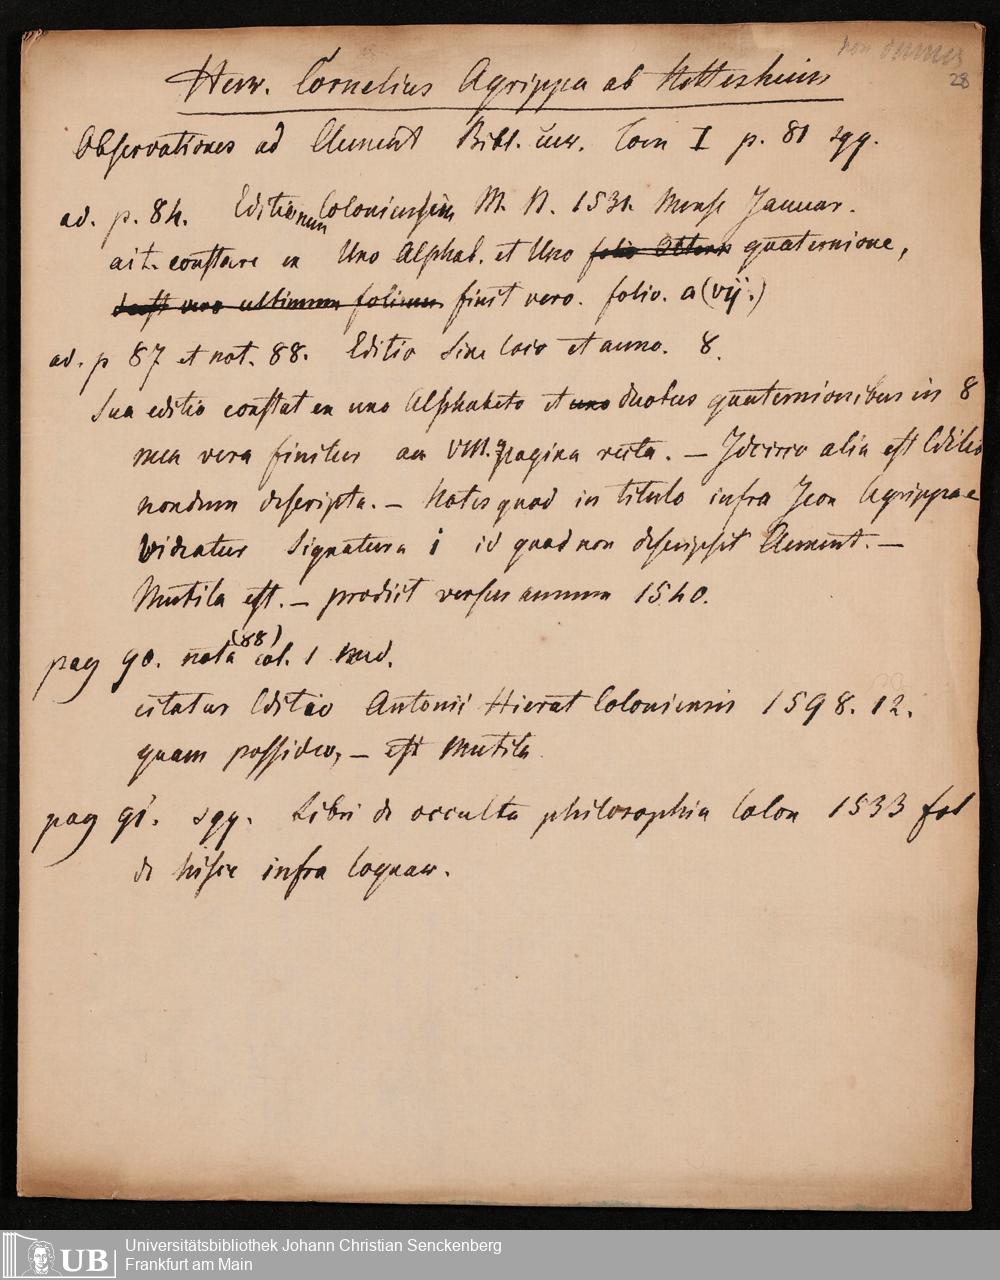 28
Henr. Cornelius Agrippa ab Nettesheim
Observationes ad Clement Bibl. cur. Tom I p. 81 sqq.
ad. p. 84. Editionem Coloniensem M. D. 1531. Mense Januar.
ait constare ex Uno Alphab. et Uno folio quaternione,
deest vero ultimum folium finit vero. folio. a (vij.)
ad. p 87 et not. 88. Editio Sine loco et anno. 8.
Sua editio constat ex uno Alphabeto et uno duobus quaternionibus in 8
mea vero finitur pagina recta. – Idcirco alia est Editio
nondum descripta. – Notes quod in titulo infra Icon Agrippae
videatur Signatura i id quod non descripsit Clement. –
Mutila est. – prodiit versus annum 1540.
pag 90. nota (88) col. 1 med.
citatur Editio Antonii Hierat Coloniensis 1598. 12.
quam possideo, – est Mutila.
pag 91. sqq. Libri de occulta philosophia Colon 1533 fol
de hisce infra loquar.
UB
Universitätsbibliothek Johann Christian Senckenberg
Frankfurt am Main